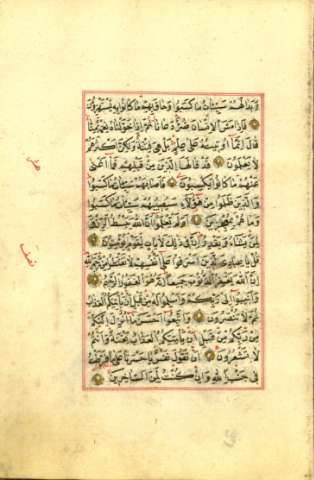 وَبَدَا لَهُمْ سَيِّئَاتُ مَا كَسَبُوا وَحَاقَ بِهِمْ مَا كَانُوا بِهِ يَسْتَهْزِؤُنَ
فَاِذَا مَسَّ الْاِنْسَانَ ضُرٌّ دَعَانَا ثُمَّ اِذَا خَوَّلْنَاهُ نِعْمَةً مِنَّا
قَالَ اِنَّمَا اُوتِيتُهُ عَلَى عِلْمٍ بَلْ هِيَ فِتْنَةٌ وَلٰكِنَّ اَكْثَرَهُمْ
لَا يَعْلَمُونَ قَدْ قَالَهَا الَّذِينَ مِنْ قَبْلِهِمْ فَمَا اَغْنٰى
عَنْهُمْ مَا كَانُوا يَكْسِبُونَ فَاَصَابَهُمْ سَيِّئَاتُ مَا كَسَبُوا
وَالَّذِينَ ظَلَمُوا مِنْ هٰؤُلَاءِ سَيُصِيبُهُمْ سَيِّئَاتُ مَا كَسَبُوا
وَمَا هُمْ بِمُعْجِزِينَ اَوَلَمْ يَعْلَمُوا اَنَّ اللّٰهَ يَبْسُطُ الرِّزْقَ
لِمَنْ يَشَاءُ وَيَقْدِرُ اِنَّ فِي ذٰلِكَ لَاٰيَاتٍ لِقَوْمٍ يُؤْمِنُونَ
قُلْ يَا عِبَادِيَ الَّذِينَ اَسْرَفُوا عَلٰى اَنْفُسِهِمْ لَا تَقْنَطُوا مِنْ رَحْمَةِ اللّٰهِ
اِنَّ اللّٰهَ يَغْفِرُ الذُّنُوبَ جَمِيعًا اِنَّهُ هُوَ الْغَفُورُ الرَّحِيمُ
وَاَنِيبُوا اِلٰى رَبِّكُمْ وَاَسْلِمُوا لَهُ مِنْ قَبْلِ اَنْ يَأْتِيَكُمُ الْعَذَابُ
ثُمَّ لَا تُنْصَرُونَ وَاتَّبِعُوا اَحْسَنَ مَا اُنْزِلَ اِلَيْكُمْ
مِنْ رَبِّكُمْ مِنْ قَبْلِ اَنْ يَأْتِيَكُمُ الْعَذَابُ بَغْتَةً وَاَنْتُمْ
لَا تَشْعُرُونَ اَنْ تَقُولَ نَفْسٌ يَا حَسْرَتٰى عَلٰى مَا فَرَّطْتُ
فِي جَنْبِ اللّٰهِ وَاِنْ كُنْتُ لَمِنَ السَّاخِرِينَ